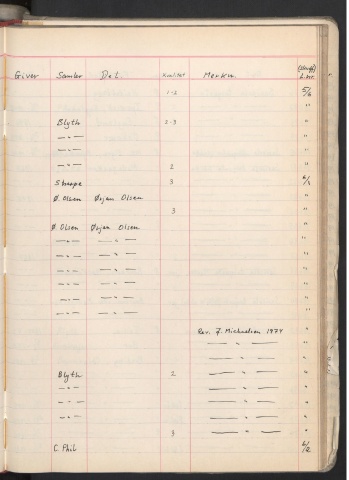 Giver Samler Det. Kvalitet Merkn. (Skuff) L.nr.
1-2 5/6
"
Blyth 2-3 "
— " — "
— " — "
— " — 2 "
3 6/1
Ø. Olsen Ørjan Olsen "
3 "
Ø. Olsen Ørjan Olsen "
— " — — " — "
— " — — " — "
— " — — " — "
— " — — " — "
— " — — " — "
— " — — " — "
Rev. J. Michaelsen 1974 "
— " — "
— " — "
Blyth 2 — " — "
— " — — " — "
— " — — " — "
— " — — " — "
3 — " — "
C. Phil 6/2